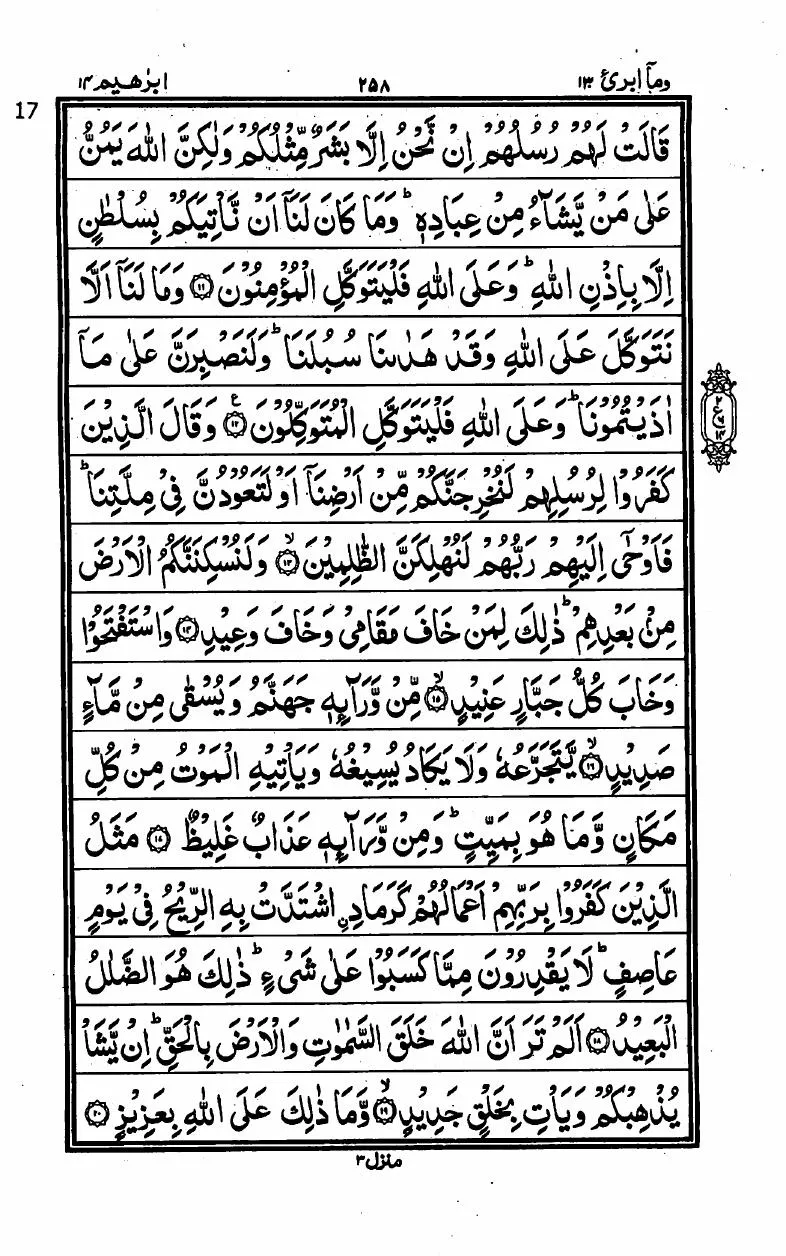 وما ابرئ ١٣
٢٥٨
ابرٰهيم ١٤
17
قَالَتْ لَهُمْ رُسُلُهُمْ اِنْ نَّحْنُ اِلَّا بَشَرٌ مِّثْلُكُمْ وَلٰكِنَّ اللّٰهَ يَمُنُّ
عَلٰى مَنْ يَّشَآءُ مِنْ عِبَادِهٖ ؕ وَمَا كَانَ لَنَاۤ اَنْ نَّاْتِيَكُمْ بِسُلْطٰنٍ
اِلَّا بِاِذْنِ اللّٰهِ ؕ وَعَلَى اللّٰهِ فَلْيَتَوَكَّلِ الْمُؤْمِنُوْنَ ۝۱۱ وَمَا لَنَاۤ اَلَّا
نَتَوَكَّلَ عَلَى اللّٰهِ وَقَدْ هَدٰىنَا سُبُلَنَا ؕ وَلَنَصْبِرَنَّ عَلٰى مَاۤ
اٰذَيْتُمُوْنَا ؕ وَعَلَى اللّٰهِ فَلْيَتَوَكَّلِ الْمُتَوَكِّلُوْنَ ۝۱۲ ع وَقَالَ الَّذِيْنَ
كَفَرُوْا لِرُسُلِهِمْ لَنُخْرِجَنَّكُمْ مِّنْ اَرْضِنَاۤ اَوْ لَتَعُوْدُنَّ فِيْ مِلَّتِنَا ؕ
فَاَوْحٰۤى اِلَيْهِمْ رَبُّهُمْ لَنُهْلِكَنَّ الظّٰلِمِيْنَ ۝۱۳ ۙ وَلَنُسْكِنَنَّكُمُ الْاَرْضَ
مِنْۢ بَعْدِهِمْ ؕ ذٰلِكَ لِمَنْ خَافَ مَقَامِيْ وَخَافَ وَعِيْدِ ۝۱۴ وَاسْتَفْتَحُوْا
وَخَابَ كُلُّ جَبَّارٍ عَنِيْدٍ ۝۱۵ ۙ مِّنْ وَّرَآئِهٖ جَهَنَّمُ وَيُسْقٰى مِنْ مَّآءٍ
صَدِيْدٍ ۝۱۶ ۙ يَّتَجَرَّعُهٗ وَلَا يَكَادُ يُسِيْغُهٗ وَيَاْتِيْهِ الْمَوْتُ مِنْ كُلِّ
مَكَانٍ وَّمَا هُوَ بِمَيِّتٍ ؕ وَمِنْ وَّرَآئِهٖ عَذَابٌ غَلِيْظٌ ۝۱۷ مَثَلُ
الَّذِيْنَ كَفَرُوْا بِرَبِّهِمْ اَعْمَالُهُمْ كَرَمَادِ ِۨ اشْتَدَّتْ بِهِ الرِّيْحُ فِيْ يَوْمٍ
عَاصِفٍ ؕ لَا يَقْدِرُوْنَ مِمَّا كَسَبُوْا عَلٰى شَيْءٍ ؕ ذٰلِكَ هُوَ الضَّلٰلُ
الْبَعِيْدُ ۝۱۸ اَلَمْ تَرَ اَنَّ اللّٰهَ خَلَقَ السَّمٰوٰتِ وَالْاَرْضَ بِالْحَقِّ ؕ اِنْ يَّشَاْ
يُذْهِبْكُمْ وَيَاْتِ بِخَلْقٍ جَدِيْدٍ ۝۱۹ ۙ وَّمَا ذٰلِكَ عَلَى اللّٰهِ بِعَزِيْزٍ ۝۲۰
منزل ٣